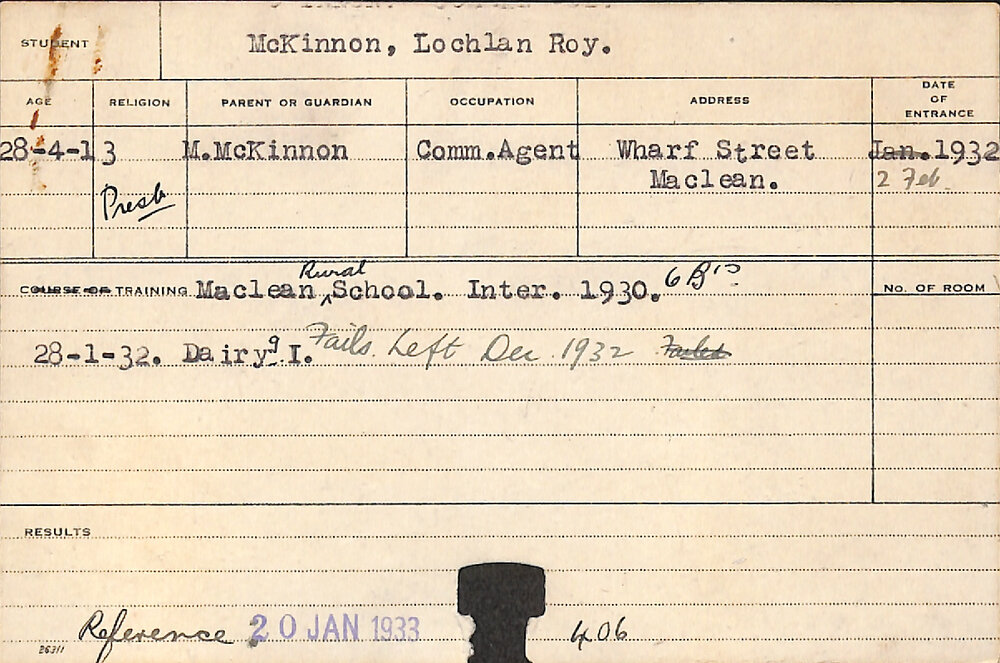 STUDENT McKinnon, Lochlan Roy.
AGE RELIGION PARENT OR GUARDIAN OCCUPATION ADDRESS DATE OF ENTRANCE
28-4-13 M.McKinnon Comm.Agent Wharf Street Jan.1932
Presb Maclean. 2 Feb.
Rural 6 B's
COURSE OF TRAINING Maclean School. Inter. 1930. No. OF ROOM
28-1-32. Dairyg I. Fails. Left Dec. 1932 Failed
RESULTS
Reference 20 JAN 1933 406
26311